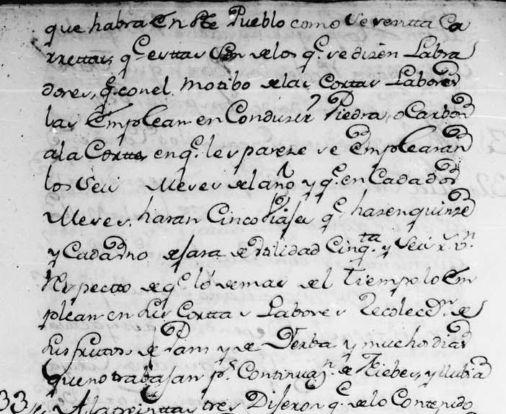 que habra en este Pueblo como se venita Ca
rrettas, q.e esttas son de los q.e se dizen Labra
dores, q.e con el motibo de las Corttas Labores
las Emplean en Conduzir Piedra, o Carbon
a la Corte en q.e les pareze se emplearan
los seis Meses del año y q.e en Cada dos
Meses, haran Cinco Viajes q.e hazen quinze
y Cada uno dejara de Utilidad Cinq.ta y seis r.s v.n
Respecto de q.e lo demas del Tiempo lo em
plean en sus Corttas Labores Recolecz.n de
sus frutos de Pam y de Yerba y muchos dias
que no trabajan p.r Continuaz.n de Niebes y llubias
33 A la treintta y tres Dijeron q.e de lo Contenido